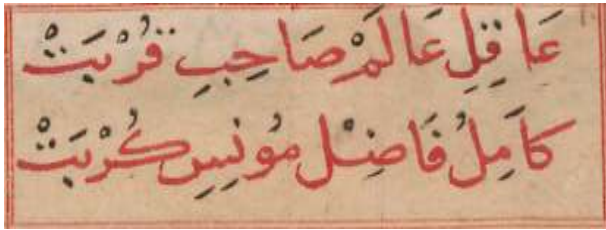 عَاقِلِ عَالَمْ صَاحِبِ قُرْبَتْ
كَامِلُ فَاضِلْ مُونِسِ كُرْبَتْ